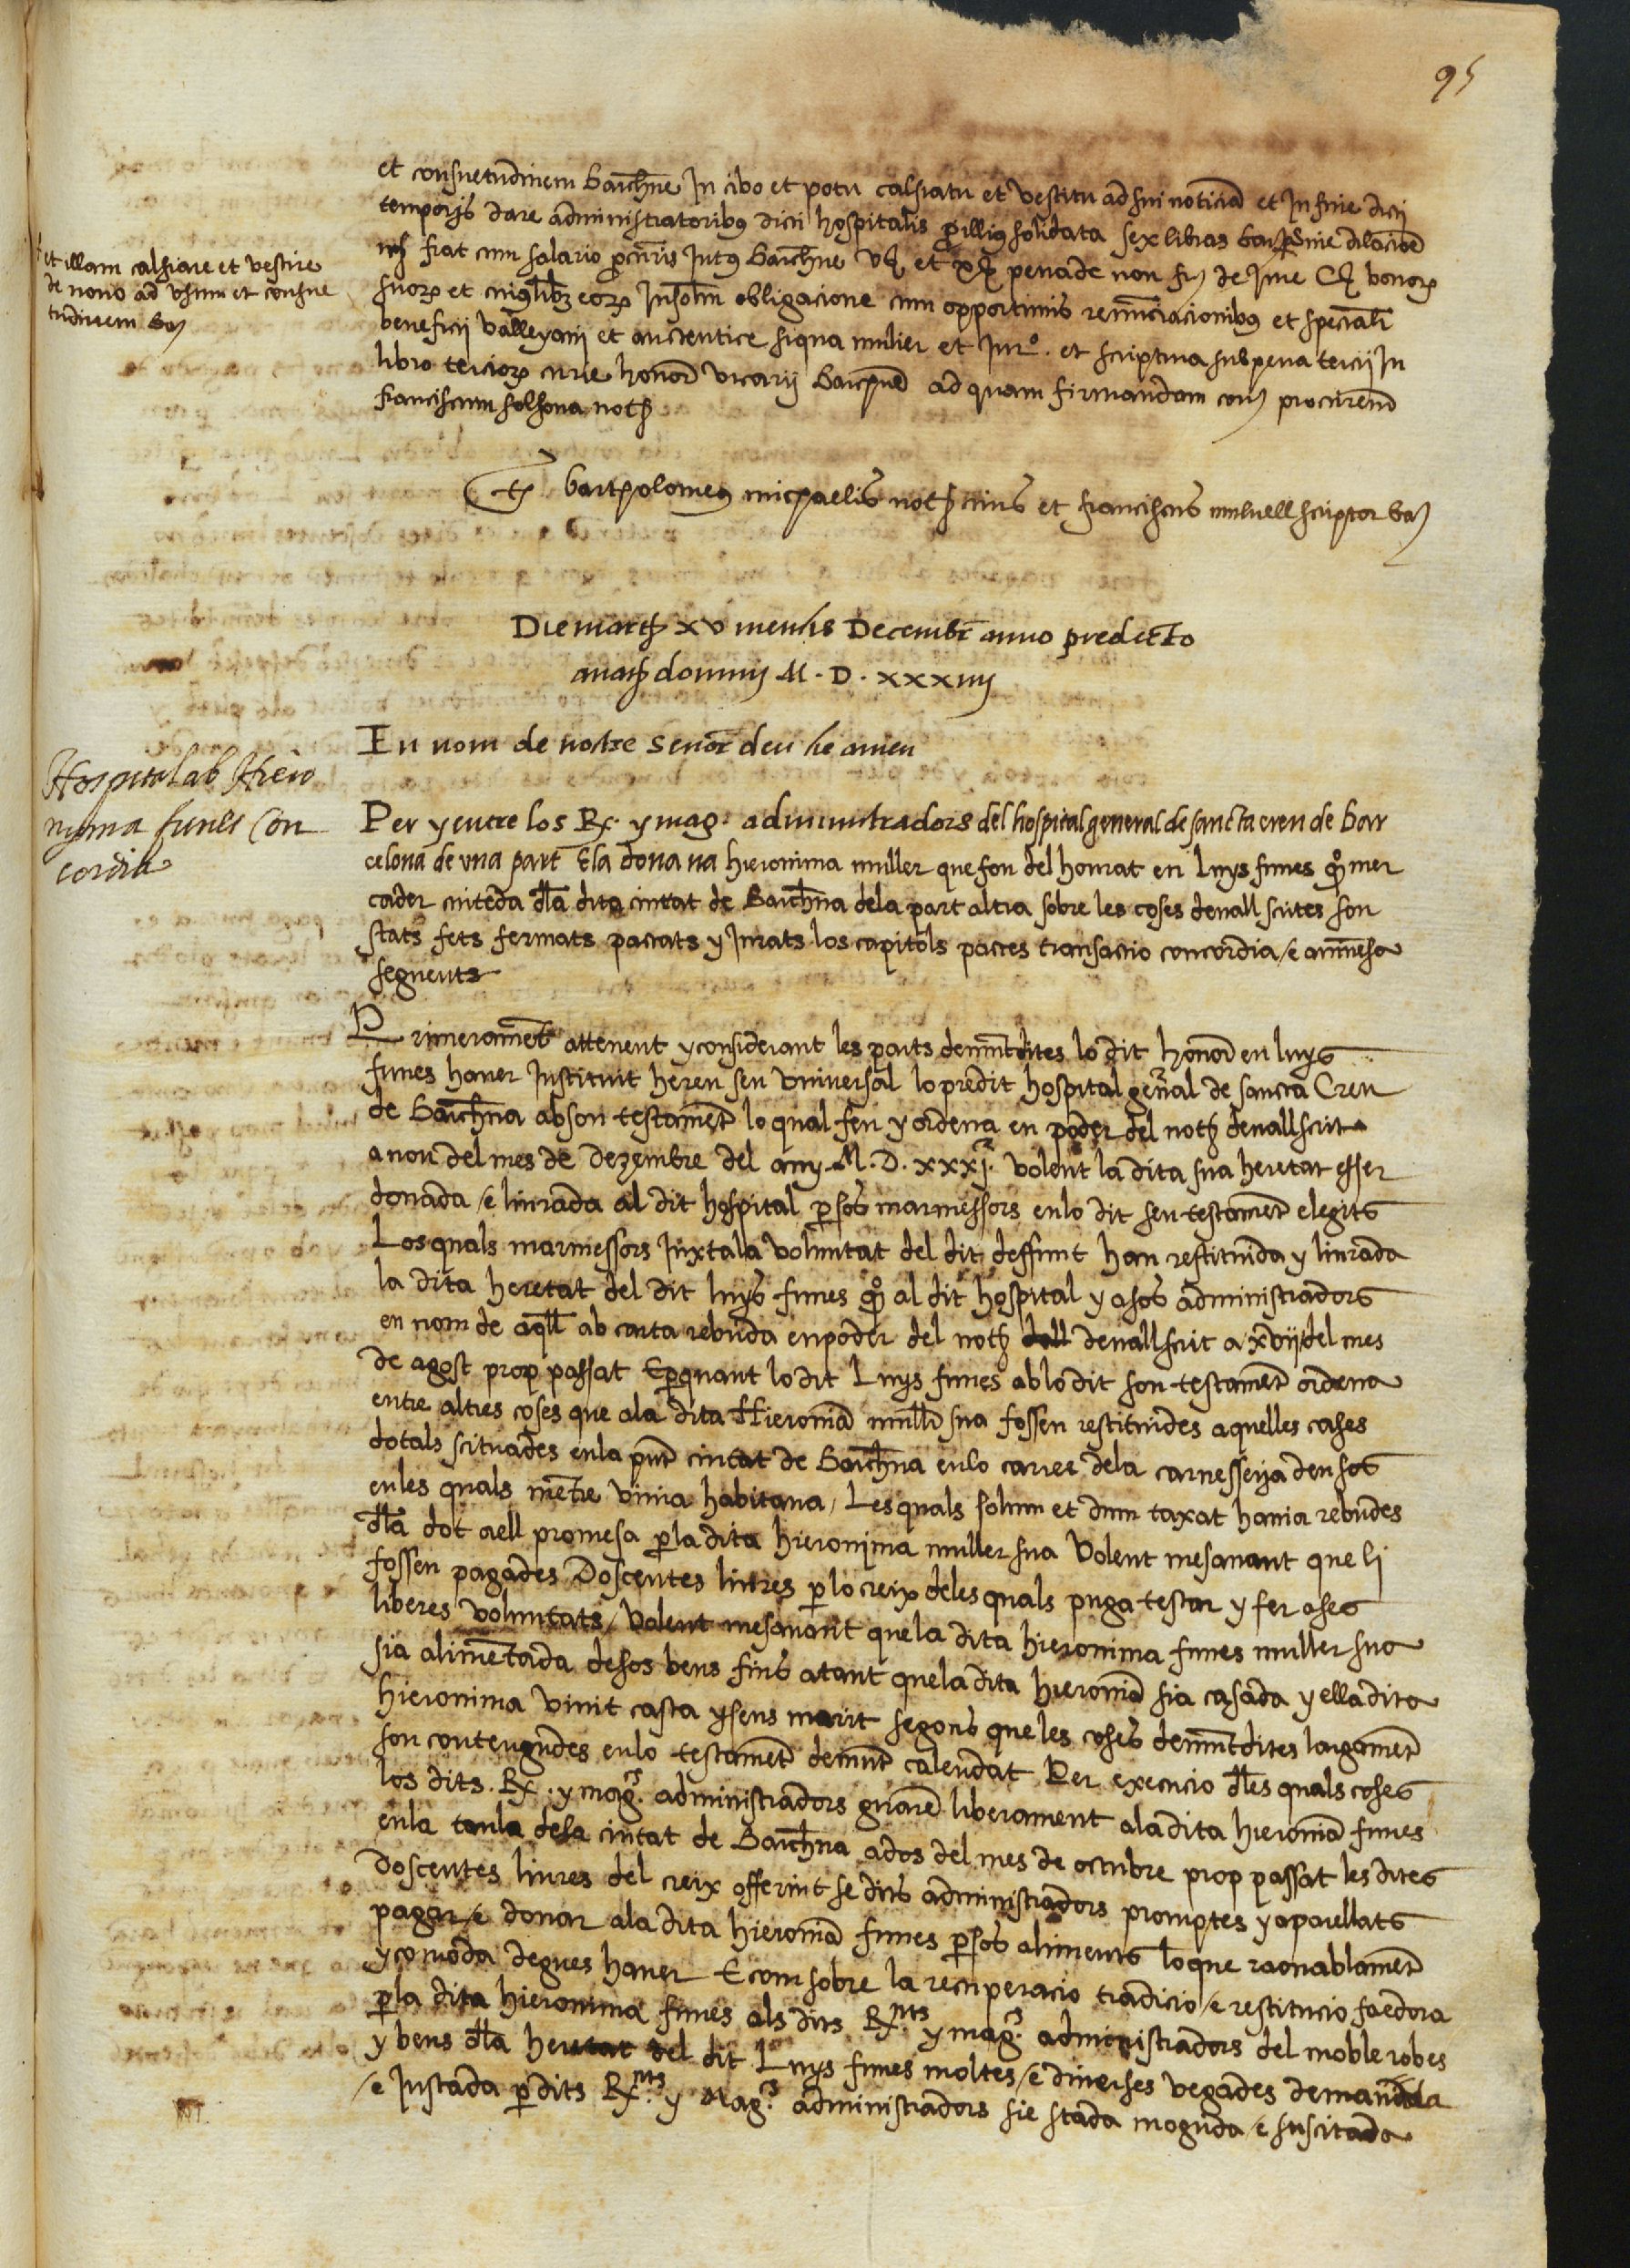 95
et consuetudinem barchne In cibo et potu calsiatu et vestitu ad sui noticiã et In fine dicti
temporis dare administratoribus dicti hospitalis p illius solidata sex libras barch sine dilacione
fiat cum salario procuris Intus barchne vs et xs pena de non de Jure bonorz
suorz et cuiuslibz eorz Insolm obligacione cum opportunis renunciacionibus et speciali
beneficii valleyani et auctentice siqua mulier et Jur°. et scriptura sub pena tercii In
libro terciorz curie honor vicarii barchne ad quam firmandam procurem
franciscum solsona noth
et illam calsiare et vestire
de novo ad usum et consue
tudinem bar
Ts bartholomeus michaelis noth civis et franciscus mulnell scriptor bar
Die martis xv mensis Decembr anno predicto
a nath domini M. D. xxxiiij
In nom de nostre senor deu sie amen
Hospitalab Hiero
nyma funes Con
cordia
Per y entre los Rx. y mag. administradors del hospital general de sancta creu de bar
celona de una part E la dona na hieronima muller que fon del honrat en luys funes qº mer
cader ciuteda dla dita ciutat de Barchna dela part altra sobre les coses devall scrites son
stats fets fermats pactats y Jurats los capitols pactes transactio concordia / e avinensa
seguents
Primerament attenent y considerant les parts demuntdites lo dit honor en luys
funes haver Instituit hereu seu universal lo predit hospital general de sancta Creu
de Barchna ab son testament lo qual feu y ordena en poder del noth devall scrit
a nou del mes de dezembre del any M. D. xxxj. volent la dita sua heretat esser
donada / e liurada al dit hospital p sos marmessors en lo dit seu testament elegits
Los quals marmessors Juxta la voluntat del dit deffunt han restituida y liurada
la dita heretat del dit luys funes qº al dit hospital y a sos administradors
en nom de aqll ab carta rebuda en poder del noth devall scrit a xviij del mes
de agost prop passat E p quant lo dit Luys funes ab lo dit son testament ordena
entre altres coses que ala dita Hieronima mull sua fossen restituides aquelles cases
dotals scituades en la pnt ciutat de Barchna en lo carrer dela carnesseria den sos
en les quals mentre vivia habitava / Les quals solum et dum taxat havia rebudes
dla dot a ell promesa p la dita hieronima muller sua Volent mes avant que li
fossen pagades Doscentes liures p lo creix deles quals puga testar y fer a ses
liberes voluntats / Volent mes avant que la dita hieronima funes muller sua
sia alimentada de sos bens fins a tant que la dita hieronima sia casada y ella dita
hieronima vivit casta y sens marit segons que les coses demuntdites largament
son contengudes en lo testament demunt calendat Per execucio dles quals coses
los dits. Rx. y mags. administradors giraren liberament ala dita hieronima funes
en la taula dela ciutat de Barchna a dos del mes de octubre prop passat les dites
doscentes liures del creix offerint se dits administradors promptes y aparellats
pagar / e donar ala dita hieronima funes p sos aliments lo que raonablament
y comoda degues haver E com sobre la recuperacio tradicio / e restitucio faedora
p la dita hieronima funes als dits Rx.nts y mags. administradors del moble robes
y bens dla heretat del dit Luys funes moltes / e diverses vegades demanada
/ e Justada p dits Rx.nts y Mags. administradors sie stada moguda / e suscitada